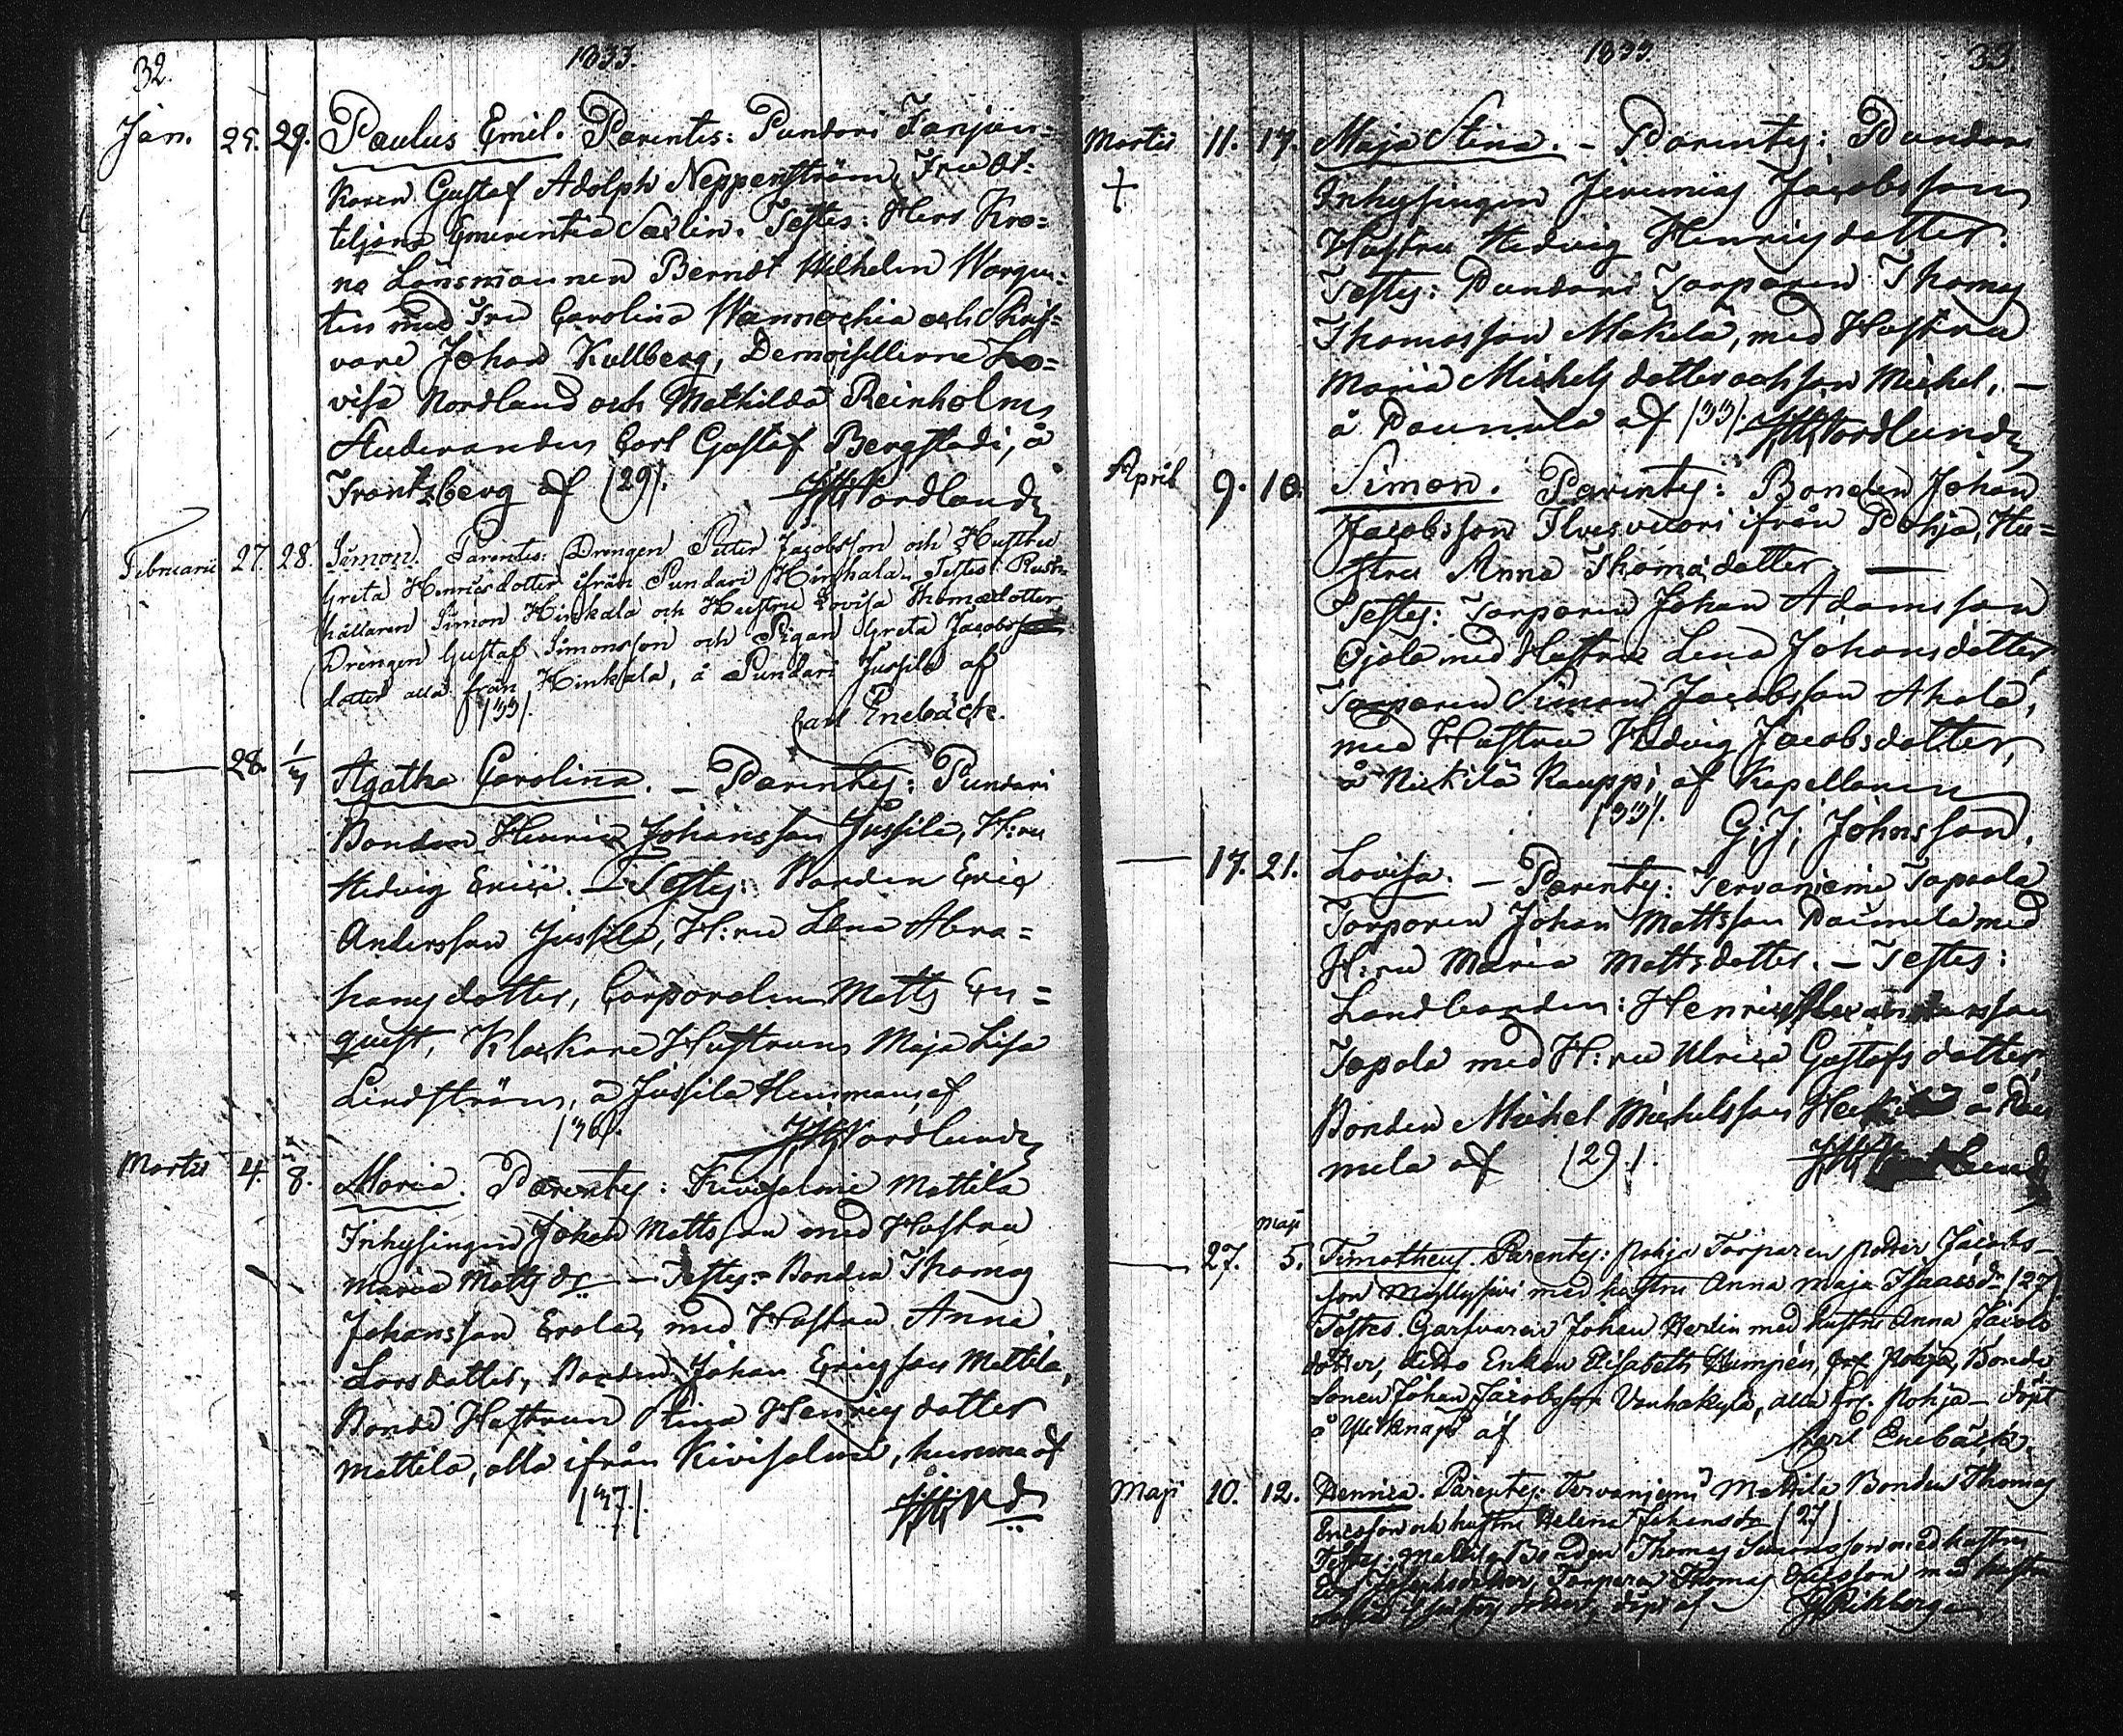 32. 1833.
Jan. 25. 29. Paulus Emil. Parentes: Pundari Fanjun=
karen Gustaf Adolph Neppenström, Fru Ot=
teljana Emerentia Saxlin. Testes: Herr Kro=
no Länsmannen Berndt Wilhelm Wargen=
tin med Fru Carolina Wannochia och Skrif=
vare Johan Kullberg, Demoisellerne Lo=
visa Nordlund och Mathilda Reinholm,
Studeranden Carl Gustaf Bergstadi, å
Frantzberg af /29/. Nordlund
Februarii 27. 28. Simon. Parentes: Drengen Petter Jacobsson och Hustru
Greta Henricsdotter ifrån Pundari Hinkala. Testes: Rust=
hållaren Simon Hinkala och Hustru Lovisa Thomædotter
Drengen Gustaf Simonsson och Pigan Greta Jacobs
dotter alla från Hinkala, å Pundari Jussila af
/33/. Carl Enebäck.
28. 1/3 Agatha Carolina. – Parentes: Pundari
Bonden Henric Johansson Jussila, H:ru
Hedvig Erici. – Testes: Bonden Eric
Andersson Jussila, H:ru Lena Abra=
hamsdotter, Corporalen Matts En=
quist, Klockare Hustrun Maja Lisa
Lindström, å Jussila Hemman, af
/36/. Nordlund
Martii 4. 8. Maria. Parentes: Kivisalmi Mattila
Inhysingen Johan Mattsson med Hustru
Maria Matts dr – Testes: Bonden Thomas
Johansson Erola, med Hustru Anna
Larsdotter, Bonden Johan Ericsson Mattila,
Bonde Hustrun Stina Henricsdotter
Mattila, alla ifrån Kivisalmi, hemma af
/37/. Nd
1833. 33
Martii 11. 17. Maja Stina. – Parentes: Pundari
Inhysingen Jeremias Jacobsson
Hustru Hedvig Henricsdotter.
Testes: Pundari Torparen Thomas
Thomasson Makela, med Hustru
Maria Michelsdotter och son Michel. –
å Paunula af /33/. Nordlund
April 9. 10. Simon. Parentes: Bonden Johan
Jacobsson Ilvesvuori ifrån Pohja, Hu=
stru Anna Thomadotter –
Testes: Torparen Johan Adamsson
Ojala med Hustru Lena Johansdotter,
Torparen Simon Jacobsson Ahola,
med Hustru Hedvig Jacobsdotter,
å Nikkilä Kauppi af Kapellanen
/33/. G: J: Johnsson.
17. 21. Lovisa. – Parentes: Tervaniemi Tapola
Torparen Johan Mattsson Paunula med
H:ru Maria Mattsdotter. – Testes:
Landbonden: Henric Alexandersson
Tapola med H:ru Ulrica Gustafsdotter,
Bonden Michel Michelsson å Pau
nula af /29/.
27. Maji 5. Timotheus. Parentes: Pohja Torparen Petter Jacobs
son Myllysivi med hustru Anna Maja Isaacs dr /27/.
Testes. Garfvaren Johan Herlin med hustru Anna Jacobs
dotter, Enkan Elisabeth Kumpén, fr. Pohja, Bonde
sonen Johan Jacobsson Vanhakylä, alla fr. Pohja – döpt
å af Carl Enebäck.
Maji 10. 12. Henrica. Parentes: Tervaniemi Mattila Bonden Thomas
Ericsson och hustru Helena Johansdr /27/
Testes: Mattila Bonden Thomas Simonsson med hustru
Josephsdotter, Torparen Thomas Ericsson med hustru
döpt af